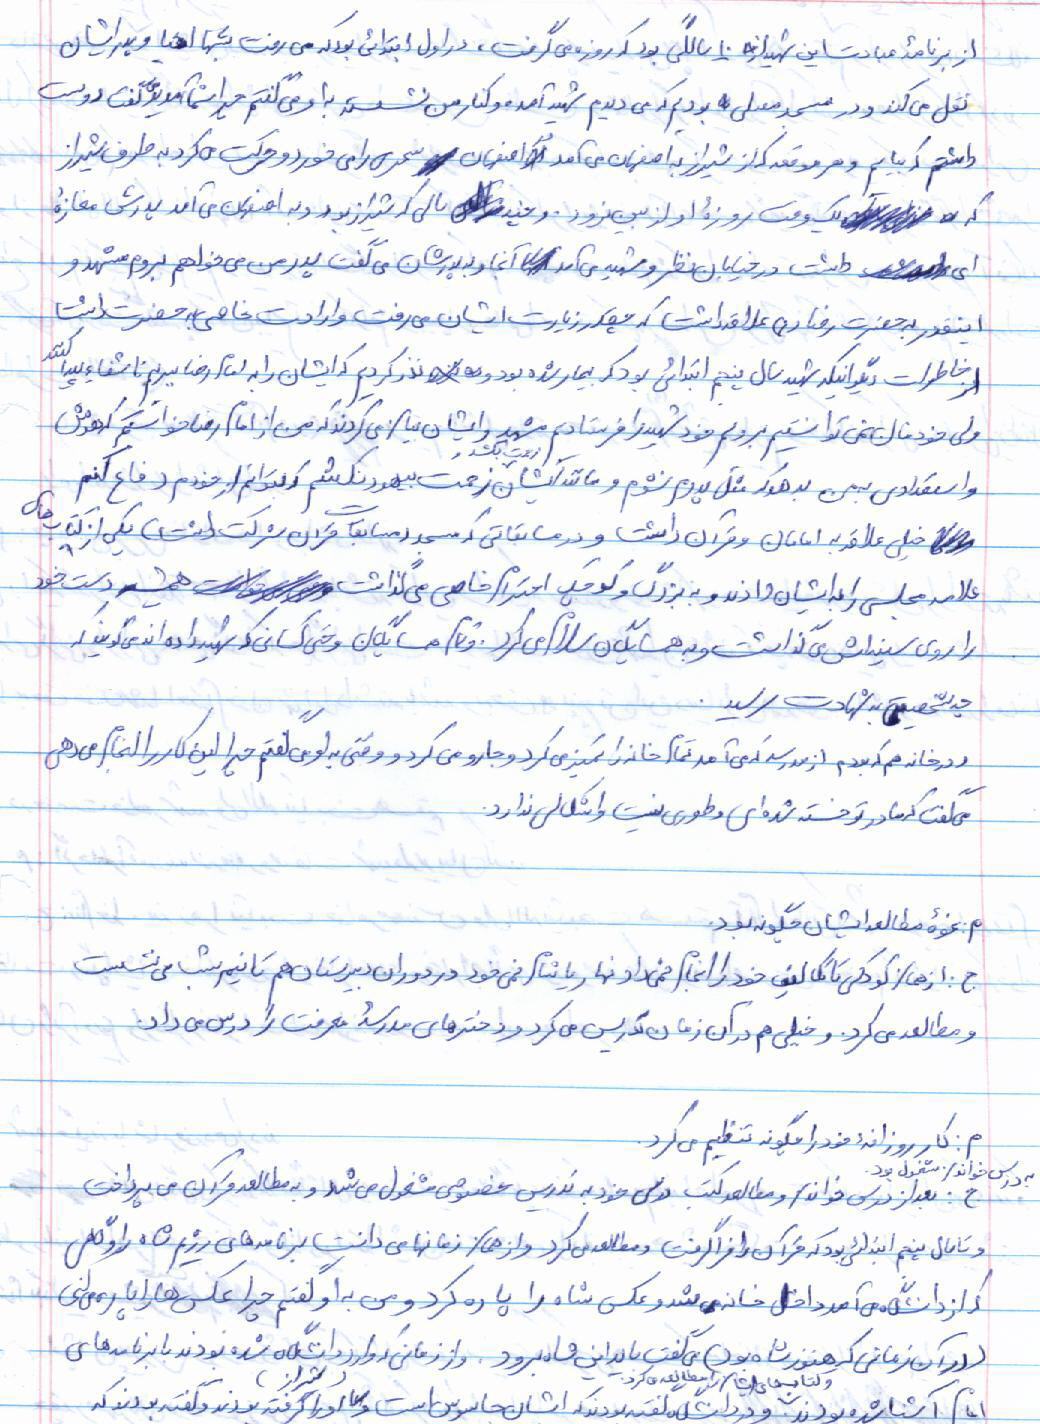 از برنامهٔ عبادت این شهید از سالگی بود که روزه می گرفت، در اول ابتدائی بود که می رفت شبها احیا و پدر ایشان
نقل می کند و در مسجد مصلی بودیم که می دیدم شهید آمده و کنار من نشسته به او می گفتم چرا شما آمدید می گفت دوست
داشتم که بیایم و هر موقعه که از شیراز به اصفهان می آمد اصفهان سحری را می خورد و حرکت می کرد به طرف شیراز
که یک وقت روزهٔ او از بین نرود. و چند سالی که شیراز بود و به اصفهان می آمد پدرش مغازهٔ
ای داشت در خیابان نظر و شهید می آمد آنجا و به پدرشان می گفت پدر من می خواهم بروم مشهد و
اینقدر به حضرت رضا (ع) علاقه داشت که زیارت ایشان می رفت و ارادت خاصی به حضرت داشت
از خاطرات دیگر اینکه شهید سال پنجم ابتدائی بود که بیمار شده بود و نذر کردیم که ایشان را به امام رضا ببریم تا شفاء پیدا کنند
ولی خودمان نمی توانستیم برویم خود شهید را فرستادیم مشهد و ایشان می کردند که من از امام رضا خواستم که هوش
و استعدادی به من بدهد که مثل پدرم نشوم و مانند ایشان زحمت بیهود نکشم که بتوانم از خودم دفاع کنم
خیلی علاقه به امامان و قرآن داشت و در مسابقاتی که مسجد مسابقات قرآن شرکت داشت یکی از کتاب های
علامه مجلسی را به ایشان دادند و به بزرگ و کوچک احترام خاصی می گذاشت همیشه دست خود
را روی سینه اش می گذاشت و به همسایگان سلام می کرد. و تمام همسایگان و حتی کسانی که شهید داده اند می گویند که
چه شخصیتی به شهادت رسید.
و در خانه هم که بودم از مدرسه که می آمد تمام خانه را تمیز می کرد و جارو می کرد و وقتی به او می گفتم چرا این کار را انجام می دهی
می گفت که مادر تو خسته شده ای و طوری نیست و اشکالی ندارد.
م: نحوهٔ مطالعه ایشان چگونه بود.
ج: از همان کودکی تا تکالیف خود را انجام نمی داد نهار یا شام نمی خورد و در دوران دبیرستان هم تا نیم شب می نشست
و مطالعه می کرد. و خیلی هم در آن زمان تدریس می کرد و دخترهای مدرسهٔ معرفت را درس می داد.
م: کار روزانهٔ خود را چگونه تنظیم می کرد.
به درس خواندن مشغول بود.
ج: بعد از درس خواندن و مطالعه کتب درسی خود به تدریس خصوصی مشغول می شد و به مطالعه قرآن می پرداخت
و تا سال پنجم ابتدائی بود که قرآن را فرا گرفت و مطالعه می کرد و از همان زمانها می دانست برنامه های رژیم شاه را و گاهی
که از دانشگاه می آمد داخل خانه می شد و عکس شاه را پاره کرد و من به او گفتم چرا عکس ها را پاره می کنی
(در آن زمانی که هنوز شاه بود) می گفت باید این شاه برود. و از زمانی که وارد دانشگاه (شیراز) شده بودند با برنامه های
و کتاب های ایشان را مطالعه می کرد.
امام آشنا شده بودند و در دانشگاه گفته بودند که ایشان جاسوس است و او را گرفته بودند و گفته بودند که